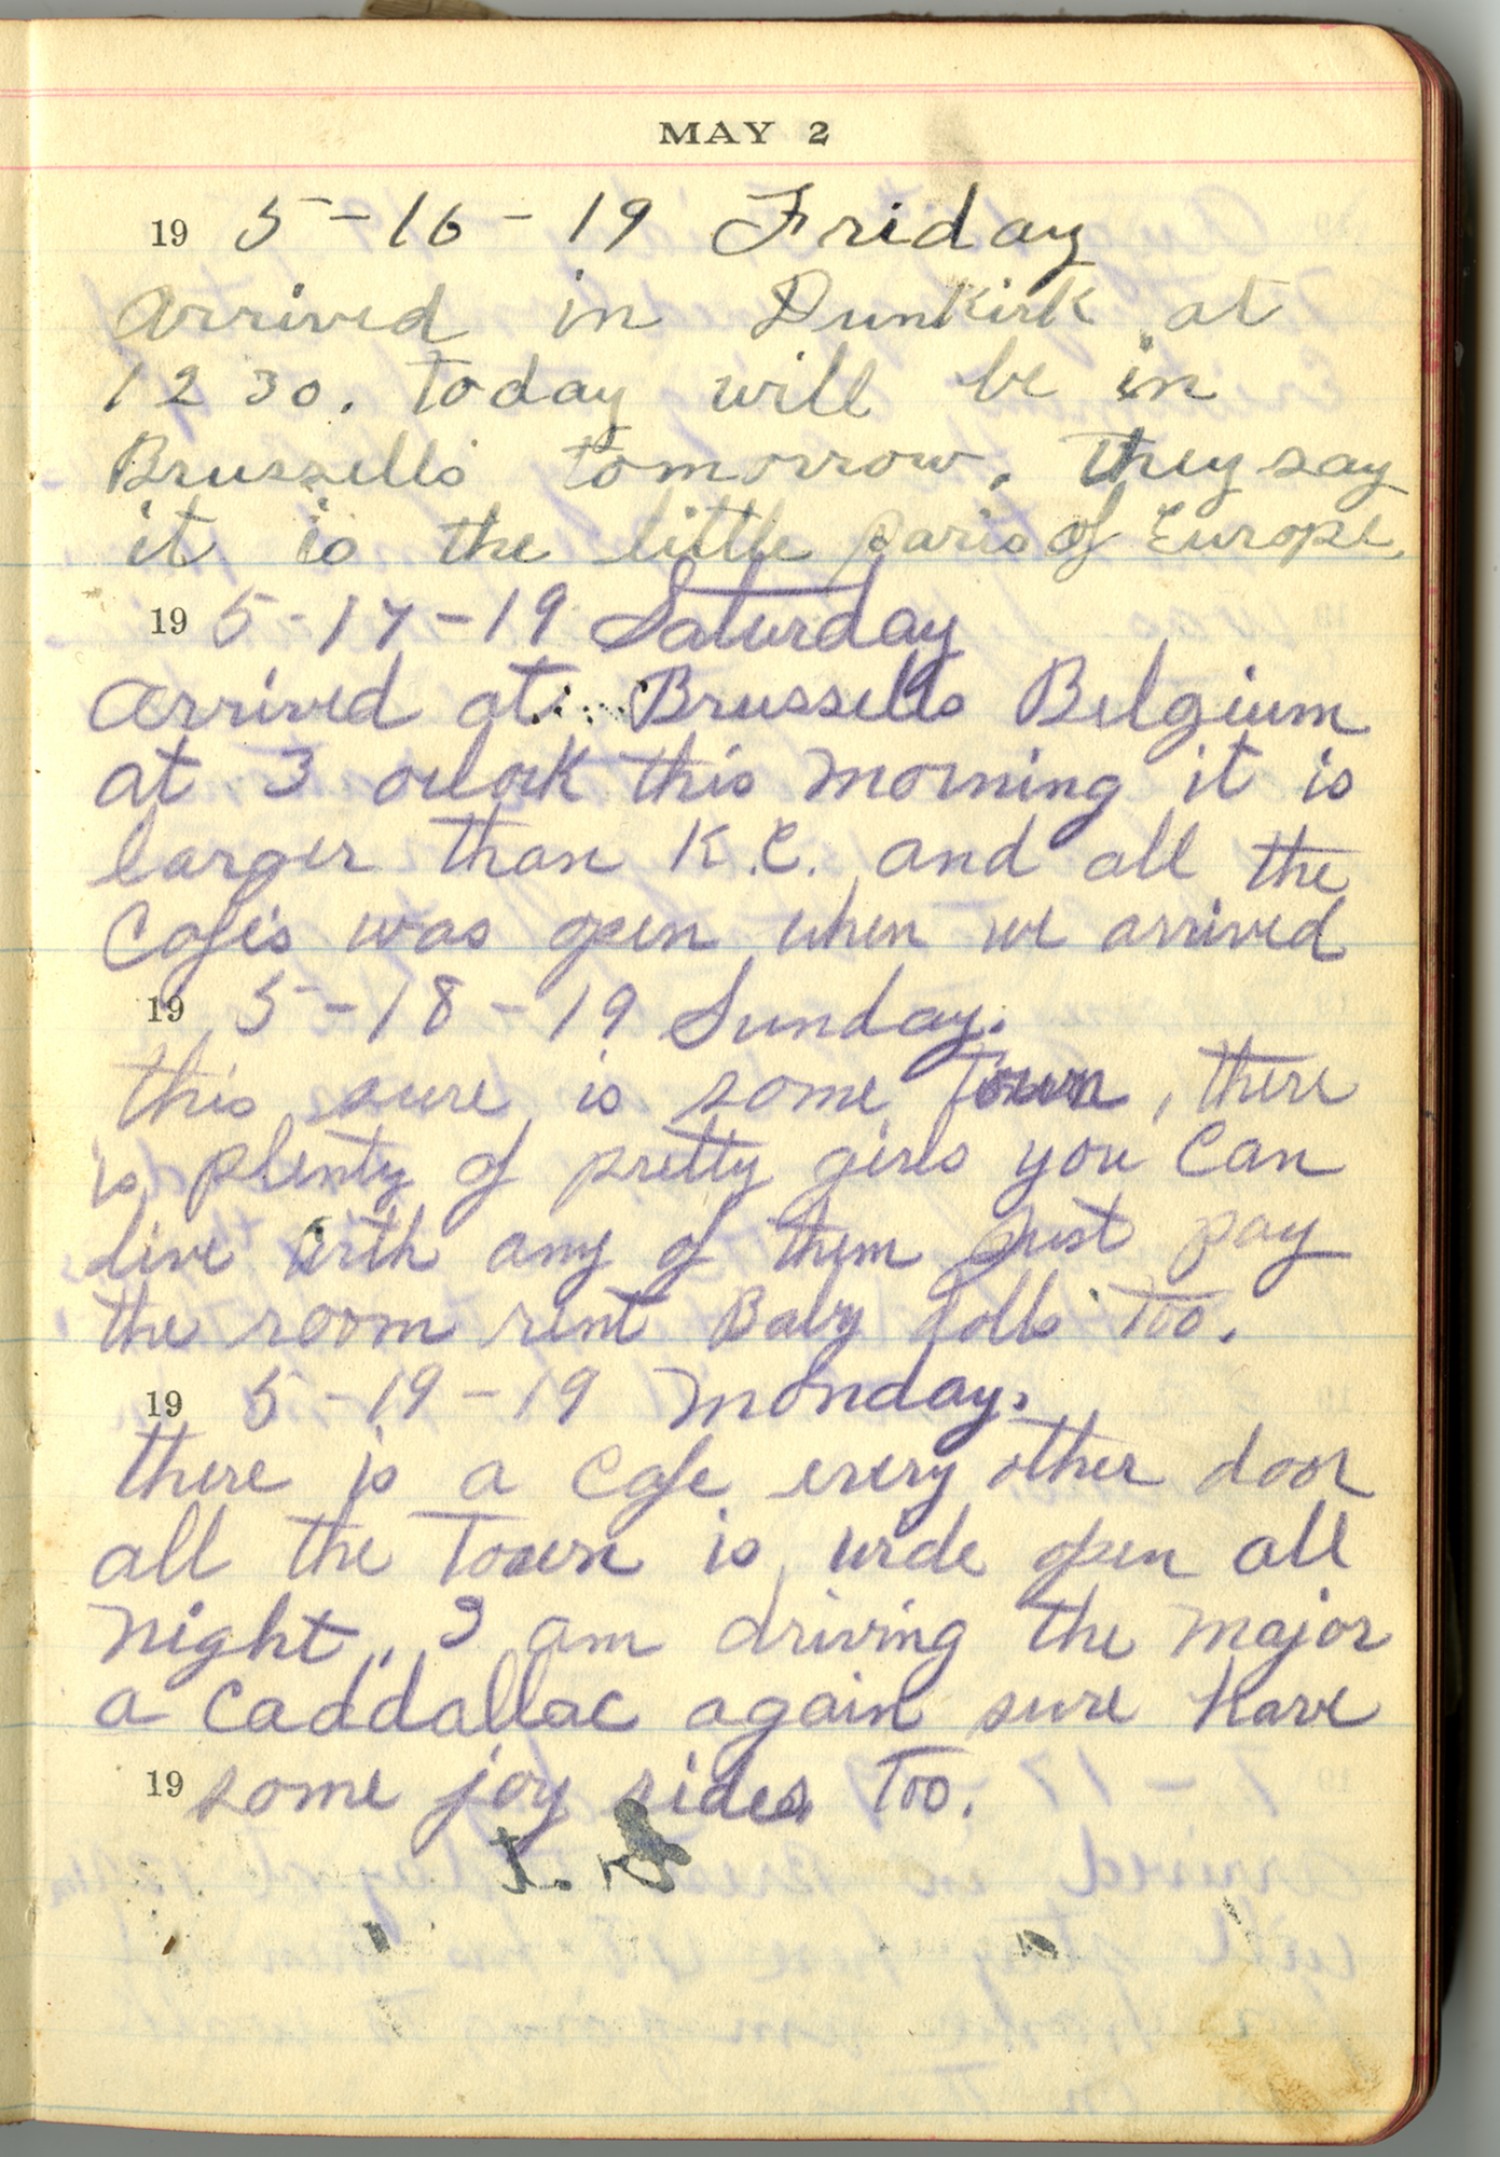 MAY 2
19 5-16-19 Friday
Arrived in Dunkirk at
12 30. today will be in
Brussells tomorrow. they say
it is the little paris of Europe.
19 5-17-19 Saturday
arrived at Brussells Belgium
at 3 oclock this morning it is
larger than K.C. and all the
Cafes was open when we arrived
19 5-18-19 Sunday.
this sure is some Town, there
is plenty of pretty girls you can
live with any of them just pay
the room rent Baby dolls too.
19 5-19-19 Monday.
there is a Cafe every other door
all the Town is wide open all
night. I am driving the major
a Caddallac again sure have
19 some joy rides too.